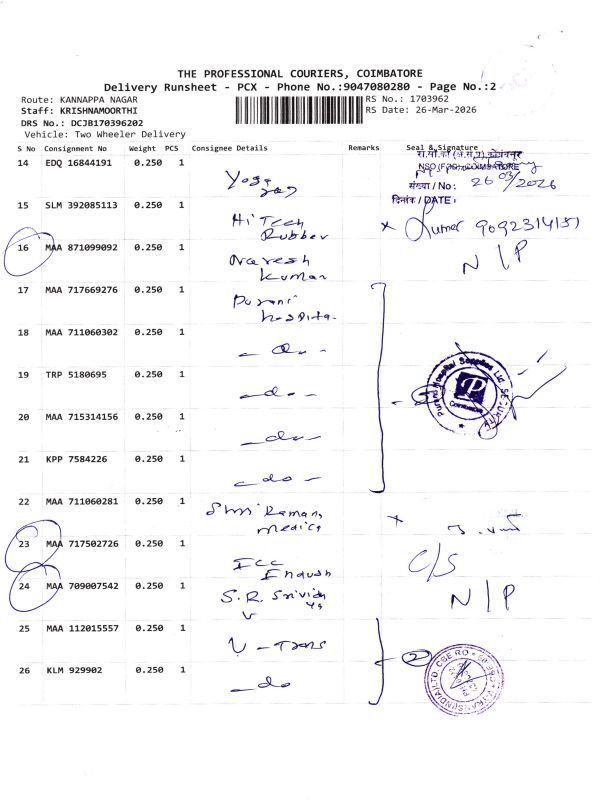 THE PROFESSIONAL COURIERS, COIMBATORE
Delivery Runsheet - PCX - Phone No.:9047080280 - Page No.:2
Route: KANNAPPA NAGAR RS No.: 1703962
Staff: KRISHNAMOORTHI RS Date: 26-Mar-2026
DRS No.: DCJB170396202
Vehicle: Two Wheeler Delivery
S No Consignment No Weight PCS Consignee Details Remarks Seal & Signature
14 EDQ 16844191 0.250 1 Yoga
संख्या / No: 26/03/2026
दिनांक / DATE:
15 SLM 392085113 0.250 1 Hi Tech Rubber × Kumar 9092314151
16 MAA 871099092 0.250 1 Naresh Kumar N/P
17 MAA 717669276 0.250 1 Purani hospital
18 MAA 711060302 0.250 1 - do -
19 TRP 5180695 0.250 1 - do -
20 MAA 715314156 0.250 1 - do -
21 KPP 7584226 0.250 1 - do -
22 MAA 711060281 0.250 1 Shri Ramana medics ×
23 MAA 717502726 0.250 1 ICC C/S
24 MAA 709007542 0.250 1 S.R. Srividhya N/P
25 MAA 112015557 0.250 1 V-Trans 2
26 KLM 929902 0.250 1 - do